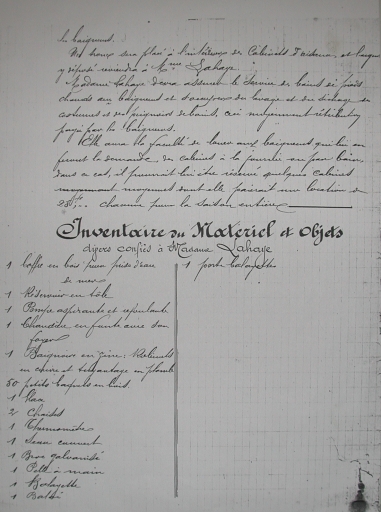 les baigneurs.
Un tronc sera placé à l'intérieur des Cabinets d'aisance, et l'argent
y déposé reviendra à Mme Lahaye.
Madame Lahaye devra assurer le service des bains de pieds
chauds aux baigneurs et s'occuper du lavage et du séchage des
costumes et des peignoirs de bains, ceci moyennant rétribution
payée par les baigneurs.
Elle aura la faculté de louer aux baigneurs qui lui en
feront la demande des cabines à la journée ou par bain,
dans ce cas, il pourrait lui être réservé quelques cabines
moyennant dont elle paierait une location de
chacune pour la saison entière
Inventaire du Matériel et Objets
divers confiés à Madame Lahaye
1 Coffre en bois pour prise d'eau
de mer
1 Réservoir en tôle
1 Pompe aspirante et refoulante
1 Chaudière en fonte avec son
foyer
1 Baignoire en zinc; Robinets
en cuivre et tuyautage en plomb
50 petits baquets en bois.
1
2 Chaises
1 Thermomètre
1 Seau
1 Broc galvanisé
1 Pelle à main
1 Balayette
1 Balai
1 porte balayette